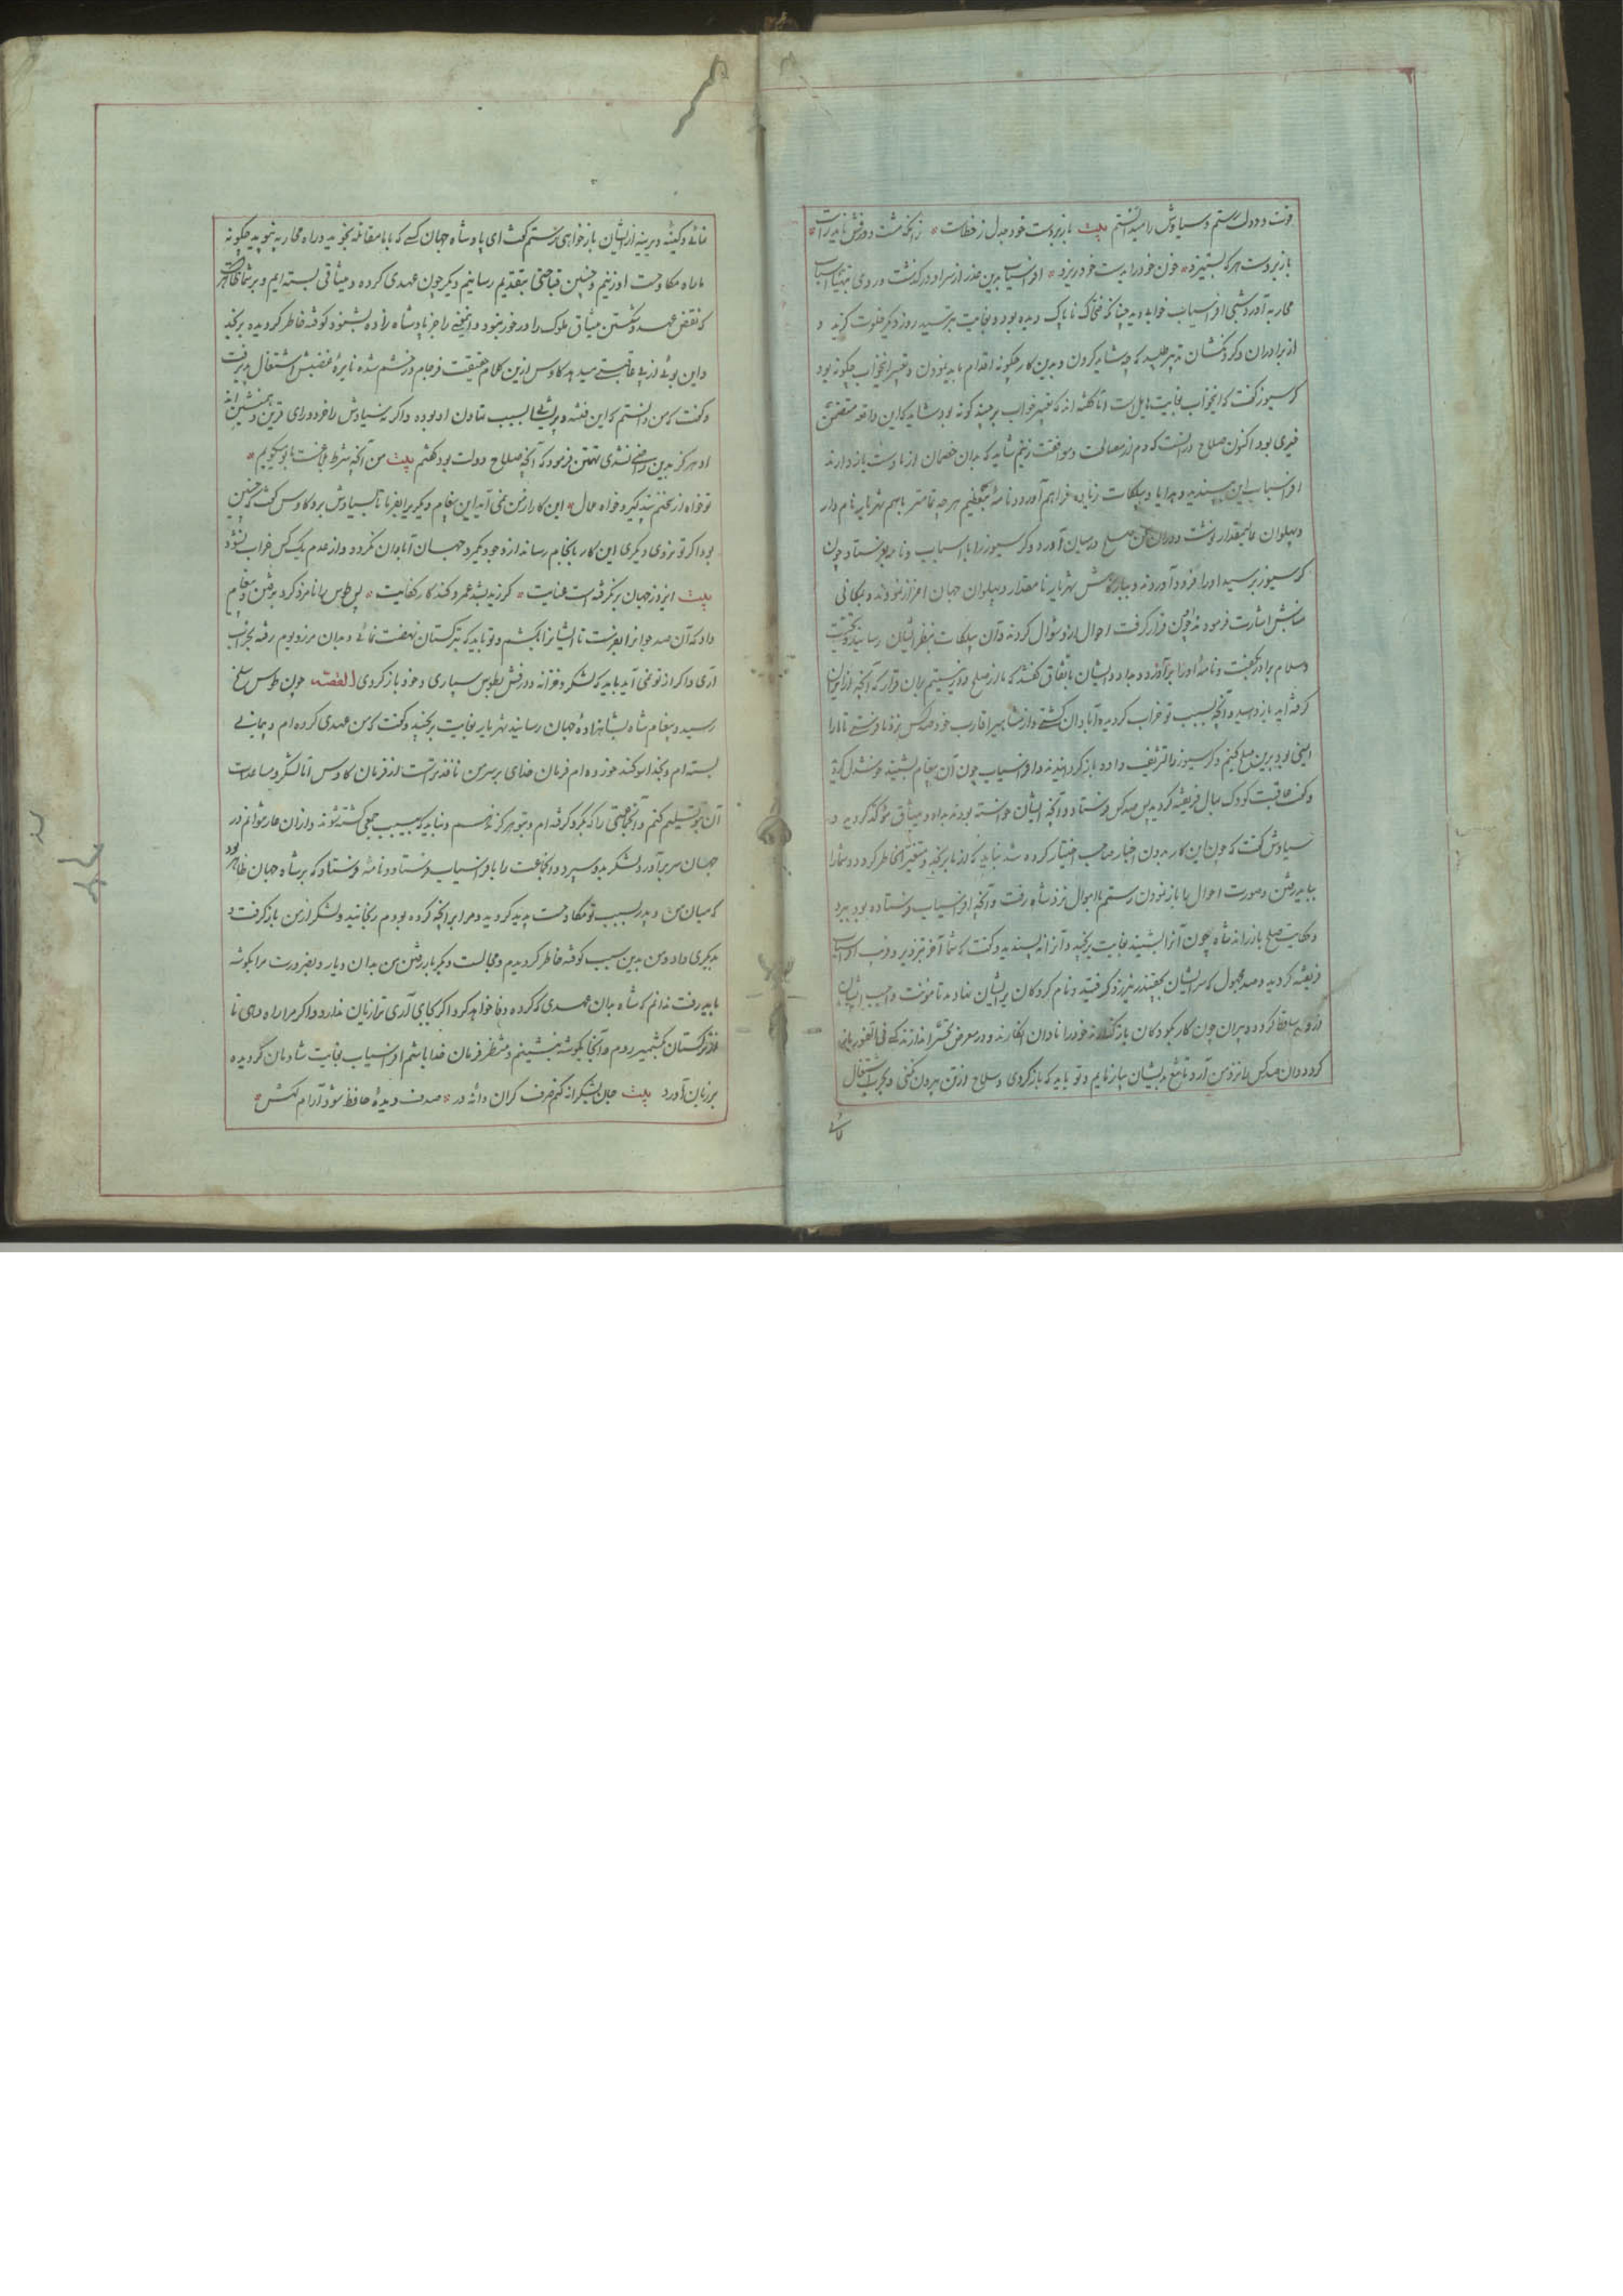 قوت و دولت رستم و سیاوش را میدانستم بیت با زبردست خود جدل ز خطاست
با زبردست هر که بستیزد خون خود را بدست خود ریزد افراسیاب بدین عذر از سر او درگذشت و روی بتهیّهٔ اسباب
محاربه آورد و شبی افراسیاب خوابی دید چنانکه ضحاک ناپاک دیده بود و بغایت بترسید روز دیگر خلوت گزید و
از برادران و گردنکشان تدبیر طلبید که چه شاید کردن و بدین کار چگونه اقدام باید نمودن و تعبیر این خواب چگونه بود
کرسیوز گفت که این خواب بغایت هایل است اما گفته اند که تعبیر خواب بر چند گونه بود شاید که این واقعه متضمن
خیری بود اکنون صلاح در آنست که دم از مصالحت و موافقت زنیم شاید که بدان خصمان از ما دست باز دارند
افراسیاب این بپسندید و هدایا و بیلکات زیاده فراهم آورد و نامهٔ بتعظیم هر چه تمامتر باسم شهریار نامدار
و پهلوان عالیمقدار نوشت و در آن سخن صلح در میان آورد و کرسیوز را با اسباب و نامه بفرستاد چون
کرسیوز برسید او را فرود آوردند و ببارگاهش شهریار نامقدار و پهلوان جهان اعزاز نمودند و بمکانی
مناسبش اشارت فرمودند چون قرار گرفت احوال ازو سؤال کردند و آن بیلکات بنظر ایشان رسانید و تحیت
و سلام برادر بگفت و نامهٔ او را برآورد و بداد و ایشان باتفاق گفتند که ما از صلح دور نیستیم بدان قرار که آنچه از ایران
گرفته اید باز دهید و آنچه بسبب تو خراب گردیده آبادان گشته و از مشاهیر اقارب خود صد کس نزد ما فرستی تا ما را
ایمنی بود برین صلح کنیم و کرسیوز را تشریف داده باز گردانیدند و افراسیاب چون آن پیغام بشنید خوشدل گردید
و گفت عاقبت کودک سال فریفته گردید پس صد کس فرستاد و آنچه ایشان خواسته بودند بداد و میثاق مؤکد گردید و
سیاوش گفت که چون این کار بدون اخبار صاحب اختیار کرده شد نباید که از ما برنجد و متغیر الخاطر گردد و شما را
بباید رفتن و صورت احوال را باز نمودن رستم با اموال نزد شاه رفت و آنچه افراسیاب فرستاده بود ببرد
و حکایت صلح باز راند شاه چون آنرا بشنید بغایت برنجید و آنرا نه پسندید و گفت که شما آخر بتزویر و فریب افراسیاب
فریفته گردید و صد مجهول که سر ایشان بچیزی نیرزد گرفتید و نام گروگان بر ایشان نهاده
گردد و آن صد کس را نزد من آرد تا بتیغ بدیشان بیازمایم و تو باید که باز گردی و سلاح از تن بیرون نکنی و بحرب اشتغال
نمائی و کینهٔ دیرینه از ایشان باز خواهی رستم گفت ای پادشاه جهان کسی که با ما مقابله نجوید و راه محاربه نپوید چگونه
ما راه مکاوحت او زنیم و چنین قباحتی بتقدیم رسانیم دیگر چون عهدی کرده و میثاقی بسته ایم و بر شما ظاهر است
که نقض عهد و شکستن میثاق ملوک را در خور نبود و این سخن را جز پادشاه زاده بشنود کوفته خاطر گردیده برنجد
و این بوی از بی عاقبتی میدهد کاوس ازین کلام حقیقت فرجام در خشم شده نایرهٔ غضبش اشتعال پذیرفت
و گفت که من دانستم که این فتنه و پریشانی بسبب تهاون او بوده و اگر نه سیاوش را خرد و رای قرین و همنشین اند
او هرگز بدین راضی نشدی تهمتن فرمود که آنچه صلاح دولت بود گفتم بیت من آنچه شرط بلاغست با تو میگویم
تو خواه از سخنم پند گیر و خواه ملال این کار از من نمی آید این پیغام دیگری را بفرما تا بسیاوش برد کاوس گفت که چنین
بود اگر تو نروی دیگری این کار بانجام رساند از وجود یکمرد جهان آبادان نگردد و از عدم یک کس خراب نشود
بیت ایزد ز جهان بر نگرفته است عنایت گر زید بشد عمرو کند کار کفایت پس طوس را نامزد کرد برفتن و پیغام
داد که آن صد جوان را بفرست تا ایشان را بکشم و تو باید که بترکستان نهضت نمائی و بدان مرز و بوم رفته بخراب
آری و اگر از تو نمی آید باید که لشکر و خزانه و درفش بطوس سپاری و خود باز گردی القصه چون طوس ببلخ
رسید و پیغام شاه بشاهزادهٔ جهان رسانید شهریار بغایت برنجید و گفت که من عهدی کرده ام و پیمانی
بسته ام و بخدا سوگند خورده ام فرمان خدای بر سر من نافذ تر است از فرمان کاوس اما لشکر و ساعدات
آن بتو تسلیم کنم و آنجماعتی را که بگرو گرفته ام و بتو هرگز ندهم و نباید که بسبب جمعی کشته شوند و از آن عار نتوانم در
جهان سر برآورد و لشکر بدو سپرد و آنجماعت را با افراسیاب فرستاد و نامهٔ فرستاد که بر شاه جهان ظاهر بود
که میان من و پدر بسبب تو مکاوحت پدید گردید و مرا بر آنچه کرده بودم رنجانید و لشکر از من باز گرفت و
بدیگری داد و من بدین سبب کوفته خاطر گردیدم و مجالست دیگر باز رفتن من بدان دیار و بضرورت مرا بگوشهٔ
باید رفت ندانم که شاه بدان عهدی که کرده وفا خواهد کرد اگر بجای آری ترا زیان ندارد و اگر مرا راه دهی تا
از ترکستان بکشمیر روم و آنجا بگوشهٔ بنشینم و منتظر فرمان خدا باشم افراسیاب بغایت شادمان گردیده
بر زبان آورد بیت جان بشکرانه کنم صرف گر آن دانهٔ در صدف دیدهٔ حافظ شود آرام گهش